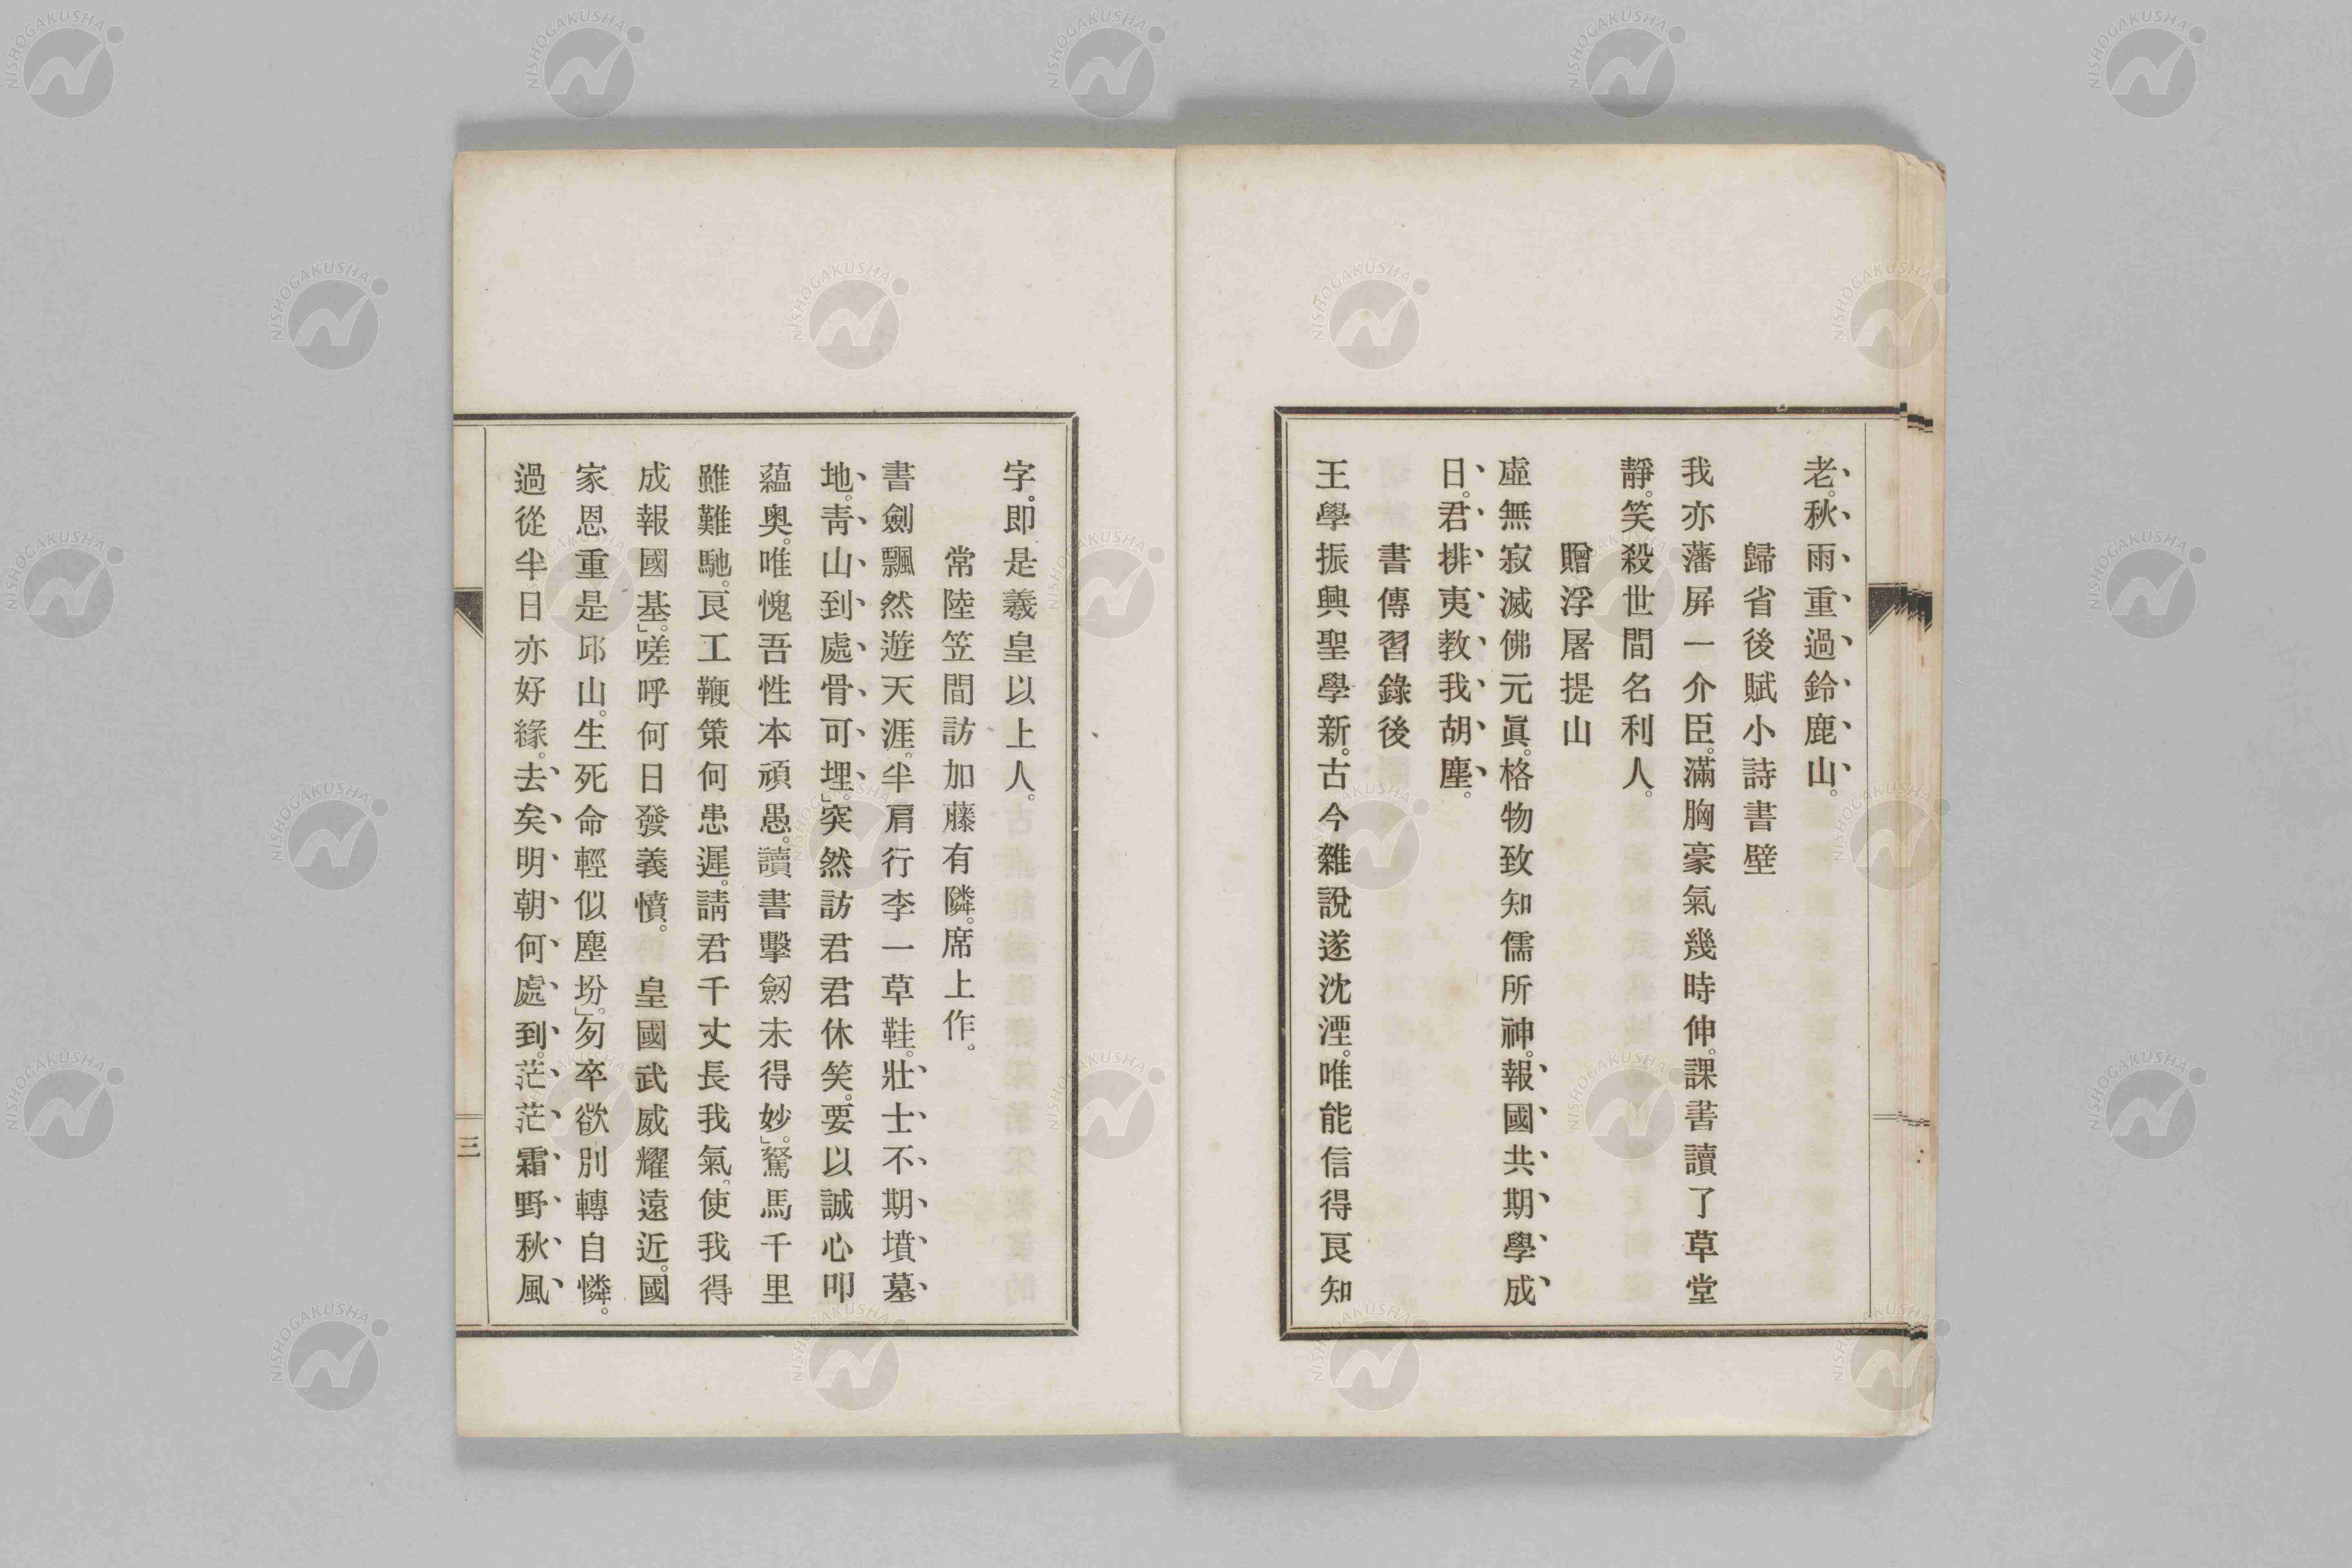 老。秋雨重過鈴鹿山。
歸省後賦小詩書壁
我亦藩屏一介臣。滿胸豪氣幾時伸。課書讀了草堂
靜。笑殺世間名利人。
贈浮屠提山
虛無寂滅佛元眞。格物致知儒所神。報國共期學成
日。君排夷教我胡塵。
書傳習錄後
王學振興聖學新。古今雜說遂沈湮。唯能信得良知
字。即是羲皇以上人。
常陸笠間訪加藤有隣。席上作。
書劍飄然遊天涯。半肩行李一草鞋。壯士不期墳墓
地。靑山到處骨可埋。」突然訪君君休笑。要以誠心叩
蘊奧。唯愧吾性本頑愚。讀書擊劒未得妙。」駑馬千里
雖難馳。良工鞭策何患遲。請君千丈長我氣。使我得
成報國基。」嗟呼何日發義憤。 皇國武威耀遠近。國
家恩重是邱山。生死命輕似塵坋。」匆卒欲別轉自憐。
過從半日亦好緣。去矣明朝何處到。茫茫霜野秋風
三
NISHOGAKUSHA